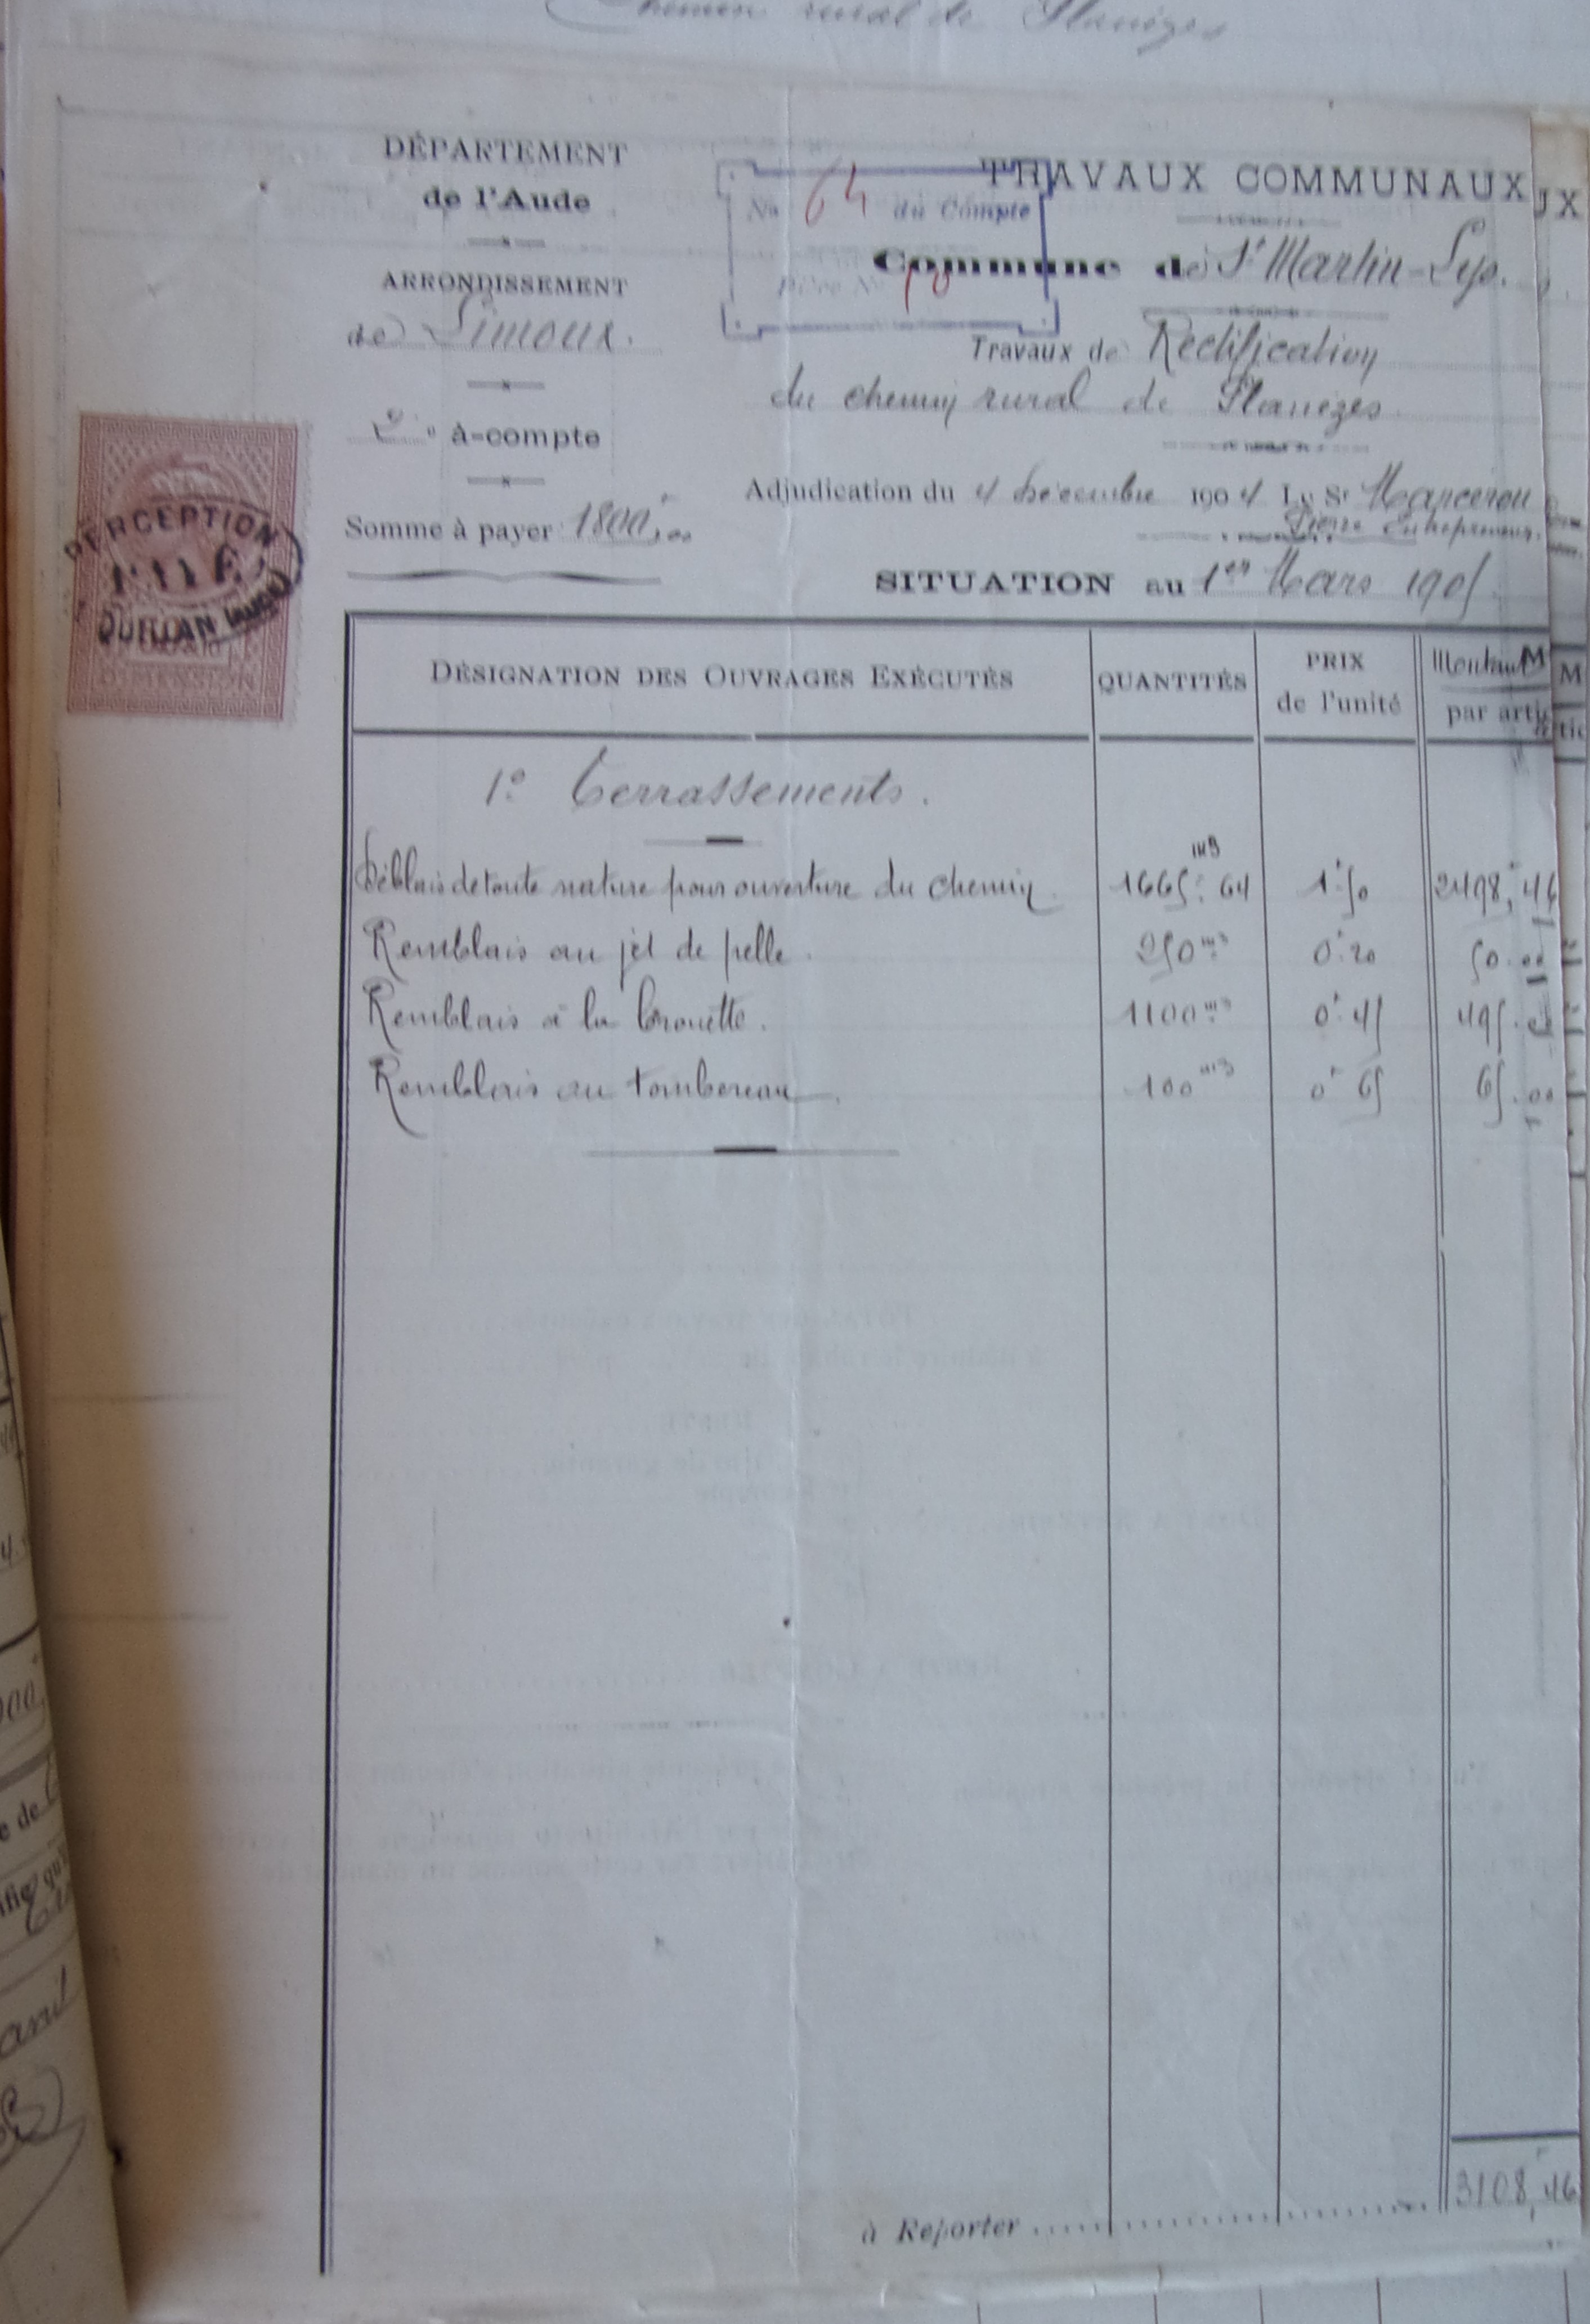 Chemin rural de Planèzes
DÉPARTEMENT
de l'Aude
ARRONDISSEMENT
de Limoux.
2e à-compte
Somme à payer 1800f,00
No 64 du Compte
Pièce No 10
TRAVAUX COMMUNAUX
UX
Commune de St Martin-Lys.
Travaux de Rectification
du chemin rural de Planèzes
Adjudication du 4 Décembre 1904 Le Sr
Pierre Entrepreneur.
SITUATION au 1er Mars 1905
PERCEPTION
QUILLAN (AUDE)
DIMENSION
DÉSIGNATION DES OUVRAGES EXÉCUTÉS QUANTITÉS PRIX de l'unité Montant M
par artic
1o Terrassements.
Déblais de toute nature pour ouverture du chemin 1665m3.64 1f.50 2498f,46
Remblais au jet de pelle. 250m3 0f.20 50.00
Remblais à la brouette. 1100m3 0f.45 495.00
Remblais au tombereau. 100m3 0f 65 65.00
à Reporter 3108f,46